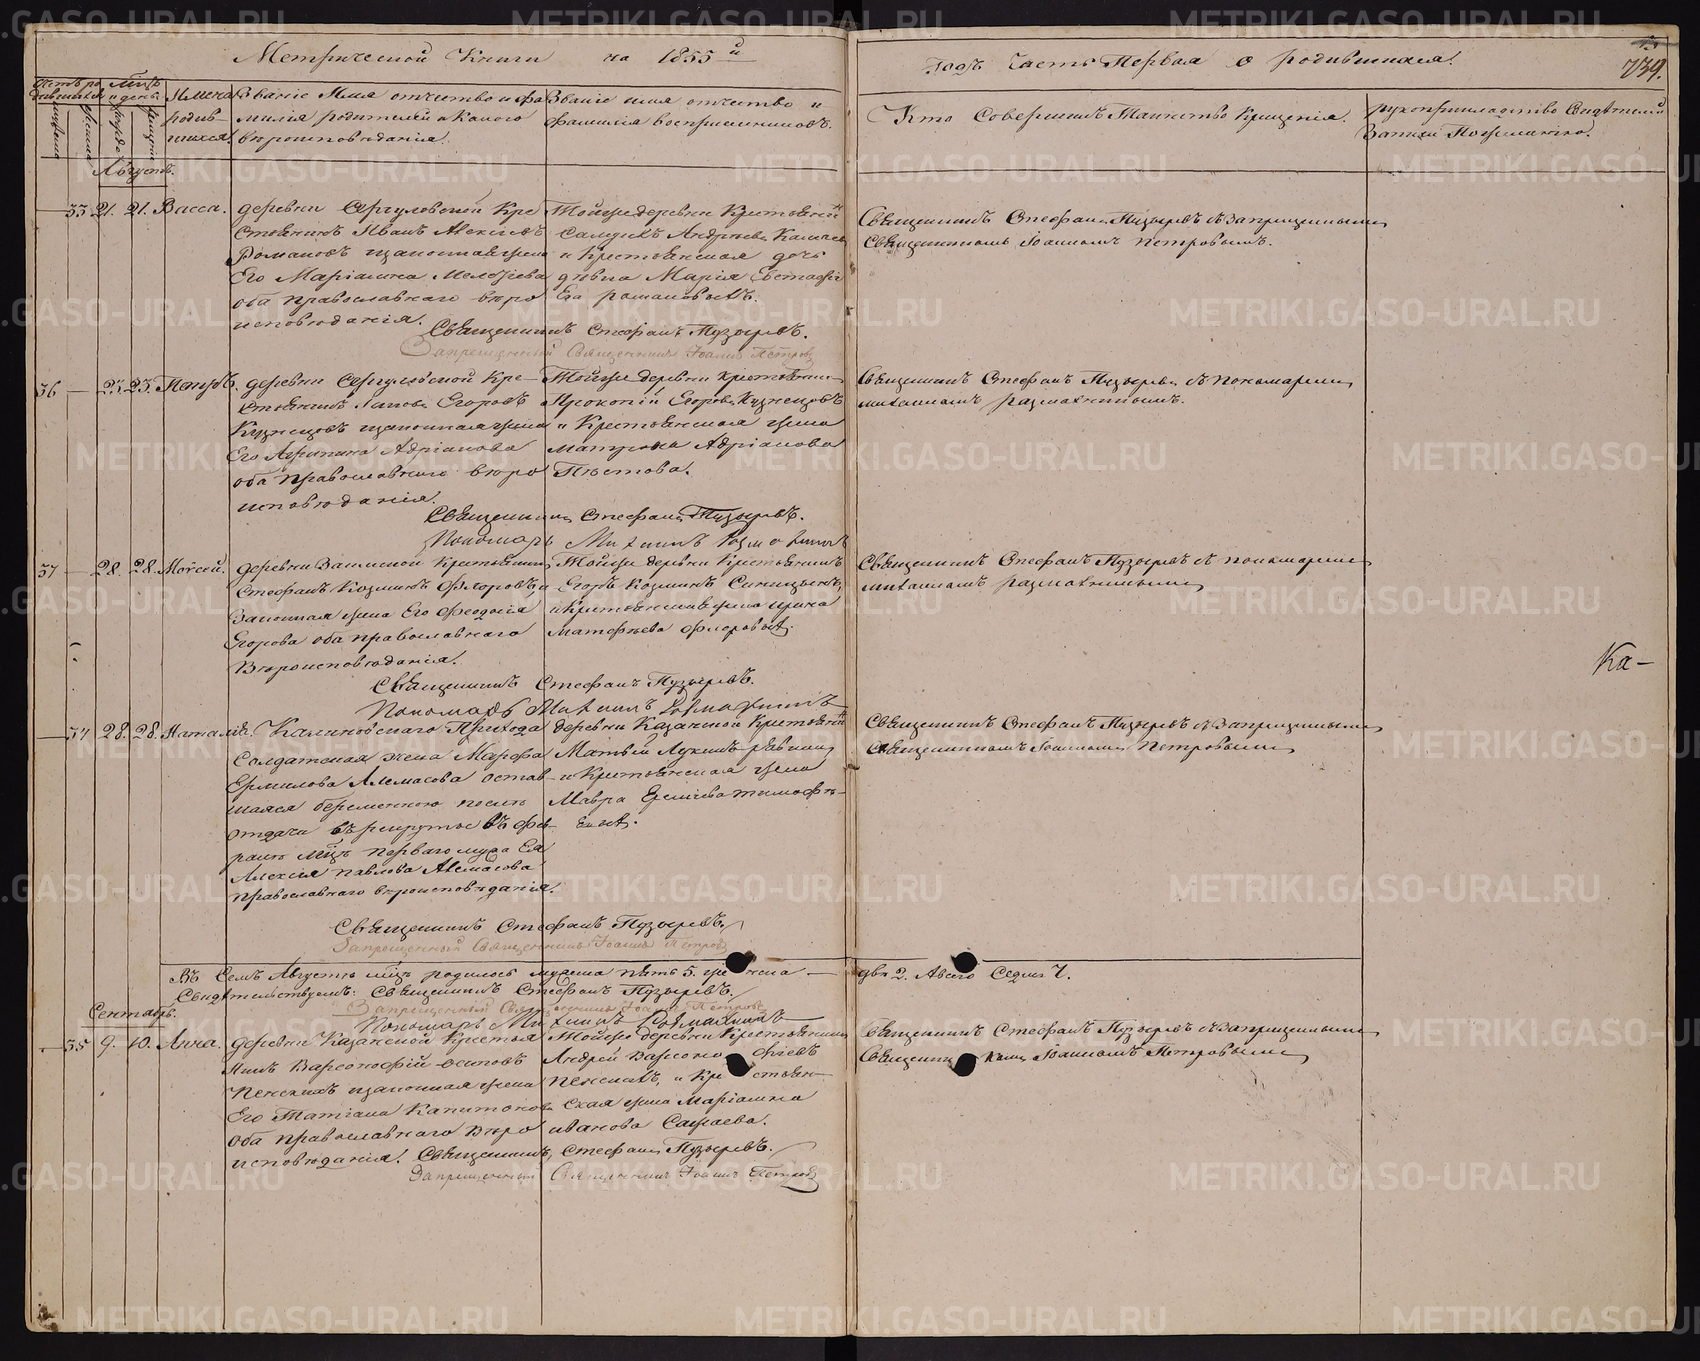 Метрической Книги на 1855й
Годъ Часть Первая о родившихся.
739.
Имена родившихся.
Званіе Имя отчество и фамилія родителей и какого вѣроисповѣданія.
Званіе имя отчество и фамилія воспріемниковъ.
Кто Совершилъ Таинство Крещенія.
рукоприкладство Свидѣтелей Записи По желанію.
Августъ.
33 21. 21. Васса.
деревни
Крестьянинъ Иванъ Алексѣевъ
Романовъ и законная жена
Его Маріамна
оба православнаго вѣро
исповѣданія.
Той же деревни Крестьянинъ
Андреевъ
и Крестьянская дочь
дѣвка Марія Евстафіева
Романовыхъ.
Священникъ Стефанъ Пузыревъ съ Запрещеннымъ
Священникомъ Іоанномъ Петровымъ.
Священникъ Стефанъ Пузыревъ.
Запрещенный Священникъ Іоаннъ Петровъ
36 23. 23. Петръ.
деревни Кре-
стьянинъ Егоровъ
Кузнецовъ и законная жена
Его Адріанова
оба православнаго вѣро
исповѣданія.
Той же деревни Крестьянинъ
Прокопій Егоровъ Кузнецовъ
и Крестьянская жена
Матрона Адріанова
Священникъ Стефанъ Пузыревъ съ пономаремъ
Михаиломъ
Священникъ Стефанъ Пузыревъ.
Пономарь Михаилъ
37 28. 28. Моисей.
деревни Крестьянинъ
Стефанъ Козминъ Флоровъ и
Законная жена Его Феодосія
Егорова оба православнаго
Вѣроисповѣданія.
Той же деревни Крестьянинъ
Егоръ Козминъ Синицынъ,
и Крестьянская жена Ирина
Матфеева Флоровыхъ.
Священникъ Стефанъ Пузыревъ съ пономаремъ
Михаиломъ
Ка-
Священникъ Стефанъ Пузыревъ.
Пономарь Михаилъ
34 28. 28. Наталія.
Калиновскаго Прихода
Солдатская жена Марфа
Ермилова Алемасова остав-
шаяся беременною послѣ
отдачи въ рекруты въ Фев-
ралѣ мцѣ перваго мужа Ея
Алексія Павлова Алемасова
православнаго вѣроисповѣданія.
деревни Казанской Крестьянинъ
Матвѣй Лукинъ
и Крестьянская жена
Мавра Тимофѣ-
евыхъ.
Священникъ Стефанъ Пузыревъ съ Запрещеннымъ
Священникомъ Іоанномъ Петровымъ
Священникъ Стефанъ Пузыревъ.
Запрещенный Священникъ Іоаннъ Петровъ
Въ Семъ Августѣ мцѣ родилось мужеска пять 5. женска
двѣ 2. А всего Седмь 7.
Свидѣтельствуемъ: Священникъ Стефанъ Пузыревъ.
Запрещенный Священникъ Іоаннъ Петровъ
Пономарь Михаилъ
Сентябрь.
35 9. 10. Анна.
деревни Казанской Крестья-
нинъ Варсонофій Осиповъ
Пенскихъ и законная жена
Его Татіана Капитонова
оба православнаго Вѣро
исповѣданія.
Той же деревни Крестьянинъ
Андрей Варсонофіевъ
Пенскихъ, и Крестьян-
ская жена Маріамна
Иванова Сафаева.
Священникъ Стефанъ Пузыревъ съ Запрещеннымъ
Священникомъ Іоанномъ Петровымъ
Священникъ Стефанъ Пузыревъ.
Запрещенный Священникъ Іоаннъ Петровъ
METRIKI.GASO-URAL.RU